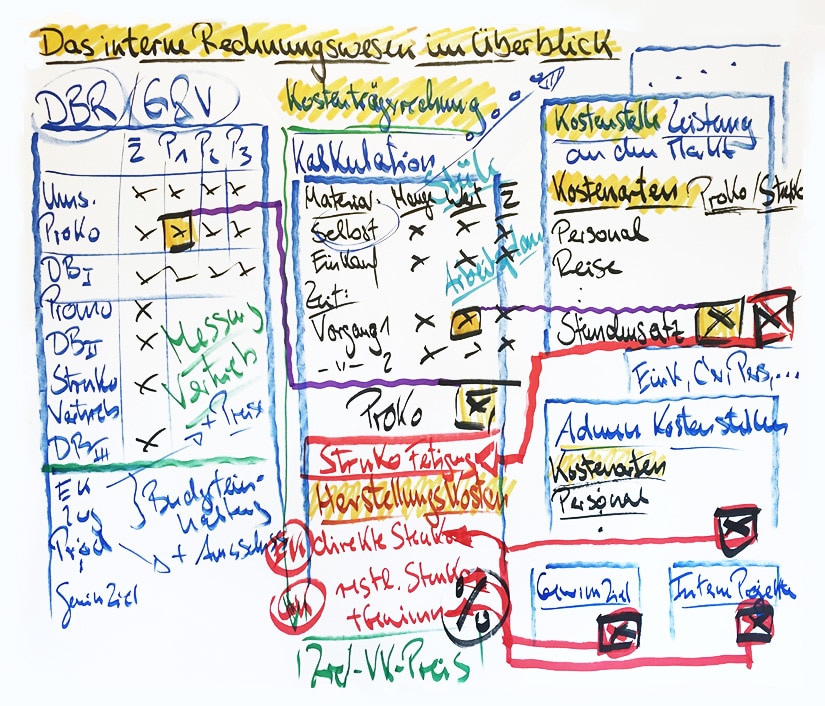 Das interne Rechnungswesen im Überblick
DBR/G&V
Σ P1 P2 P3
Ums. x x x x
Proko x x x x
DB I
Promo x
DB II x
Struko x
Vertrieb
DB III x
Messung
Vertrieb
+ Preise
EK
Prod
Budgetein-
haltung
+ Ausschuss
Gewinnziel
Kostenträgerrechnung
Kalkulation
Stückl
Material: Menge Wert Σ
Selbst x x x
Einkauf x x x
Arbeitsplan
Zeit:
Vorgang 1 x x x
-"- 2 x x x
Proko x
Struko Fertigung
Herstellungskosten
EK direkte Struko
restl. Struko
+ Gewinn %
Ziel-VK-Preis
Kostenstelle Leistung
an den Markt
Kostenarten Proko/Struko
Personal
Reise
Stundensatz x x
Admin Kostenstellen
Kostenarten
Personal
x
Gewinnziel
x
Interne Projekte
x